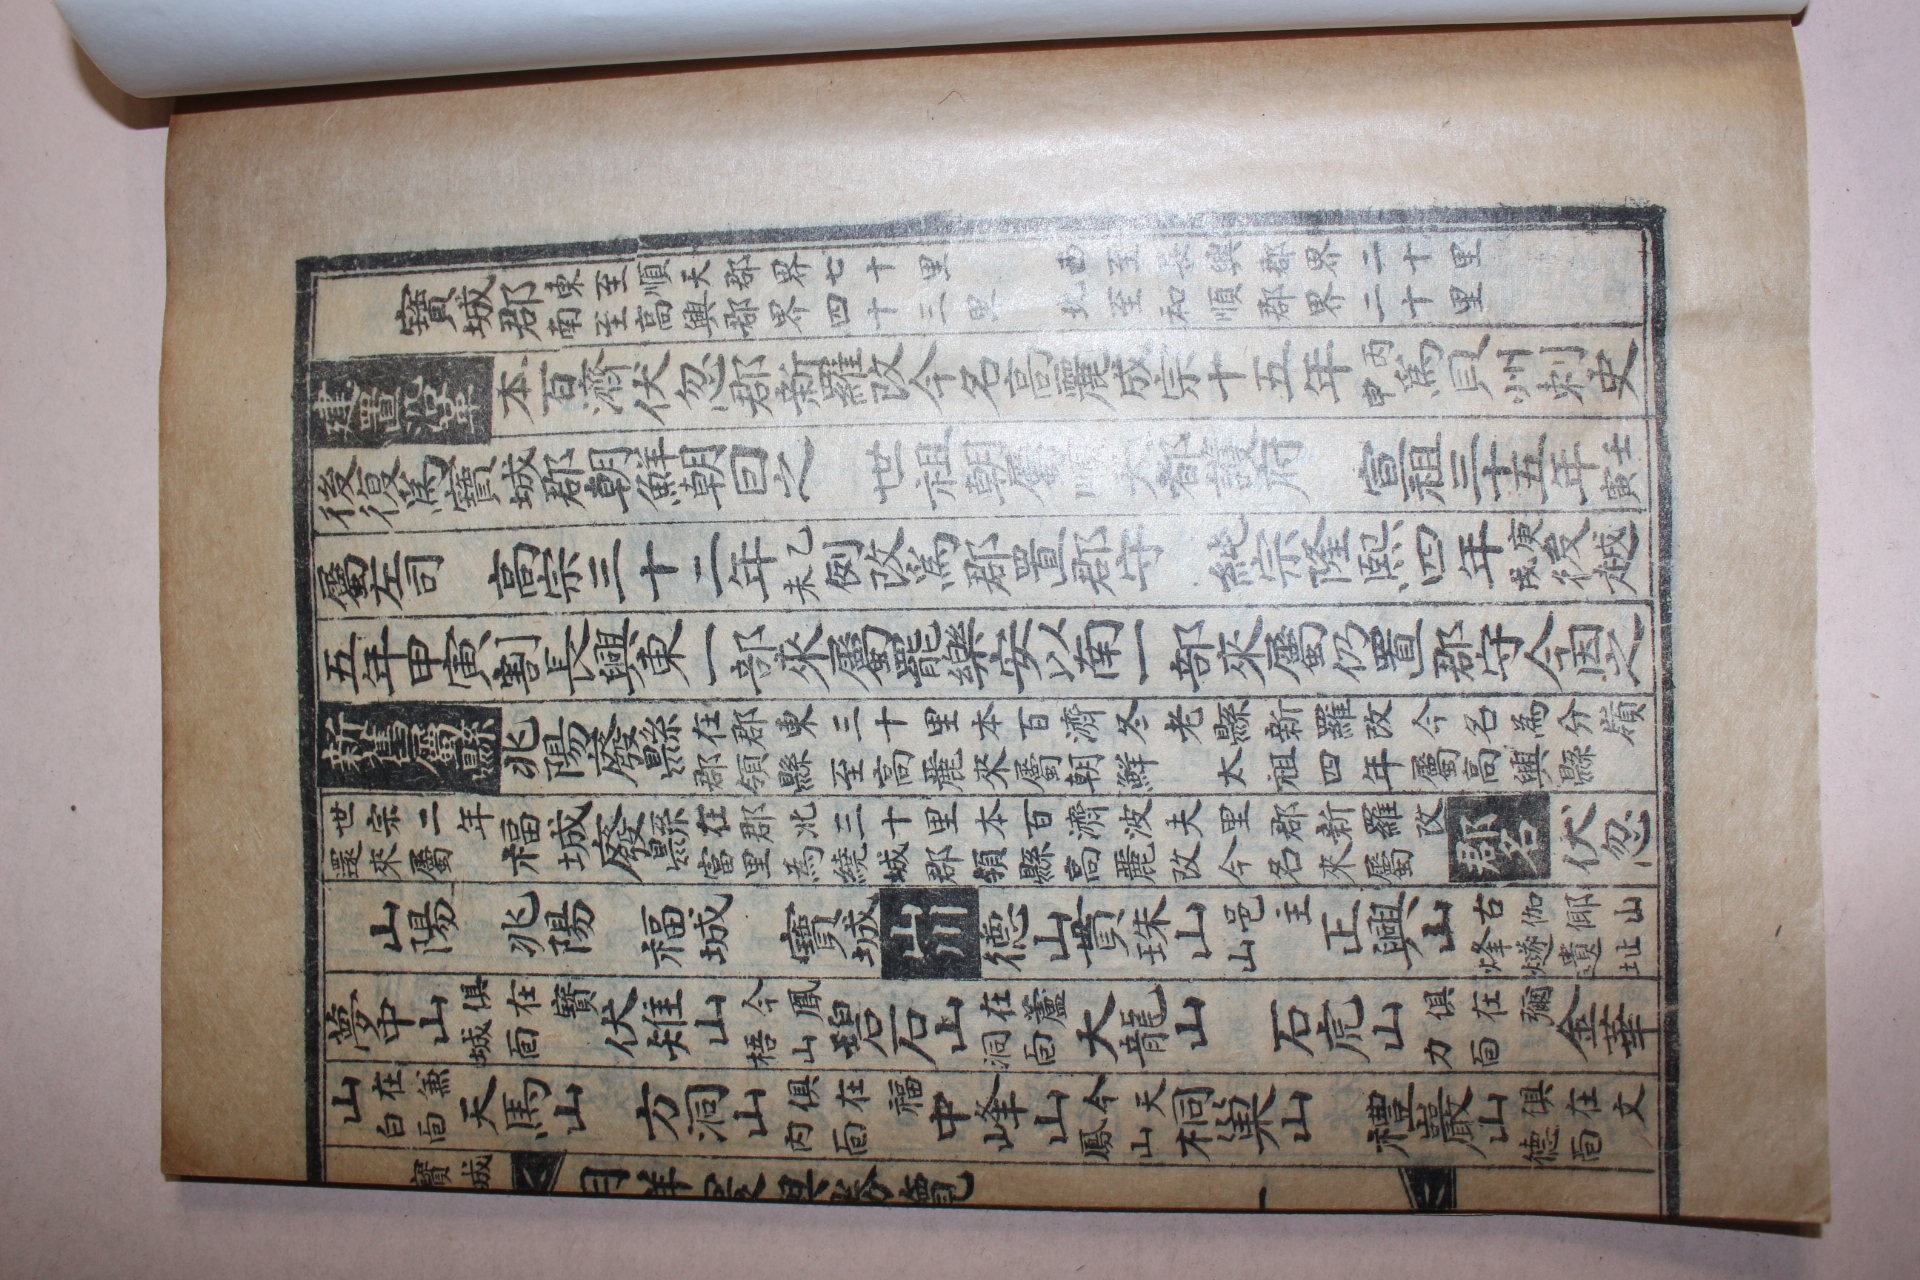 寶城郡 東至順天郡界七十里 南至高興郡界四十三里 西至長興郡界二十里 北至和順郡界二十里
建置沿革 本百濟伏忽郡新羅改今名高麗成宗十五年丙申爲貝州刺史
後復爲寶城郡朝鮮朝因之 世祖朝屬順天都護府 宣祖三十五年壬寅
屬左司 高宗三十二年乙未例改爲郡置郡守 純宗隆熙四年庚戌後越
五年甲寅割長興東一部來屬罷樂安以南一部來屬仍置郡守今因之
新舊屬縣 兆陽廢縣 在郡東三十里本百濟冬老縣新羅改今名為分嶺郡領縣至高麗來屬朝鮮 太祖四年屬高興縣
世宗二年還來屬 福城廢縣 在郡北三十里本百濟波夫里郡新羅改富里為綾城郡領縣高麗改今名來屬 郡名 伏忽
山陽 兆陽 福城 寶城 山川 德山 貫珠山 邑主山 正興山 古伽倻山烽燧遺址
夢中山 俱在寶城面 伏雉山 今鳳梧山 碧石山 在蘆洞面 大龍山 石虎山 俱在彌力面 金華
山 在兼白面 天馬山 方洞山 俱在福內面 中峰山 今天鳳山 桐巢山 禮巖山 俱在文德面
寶城 勝覽 一